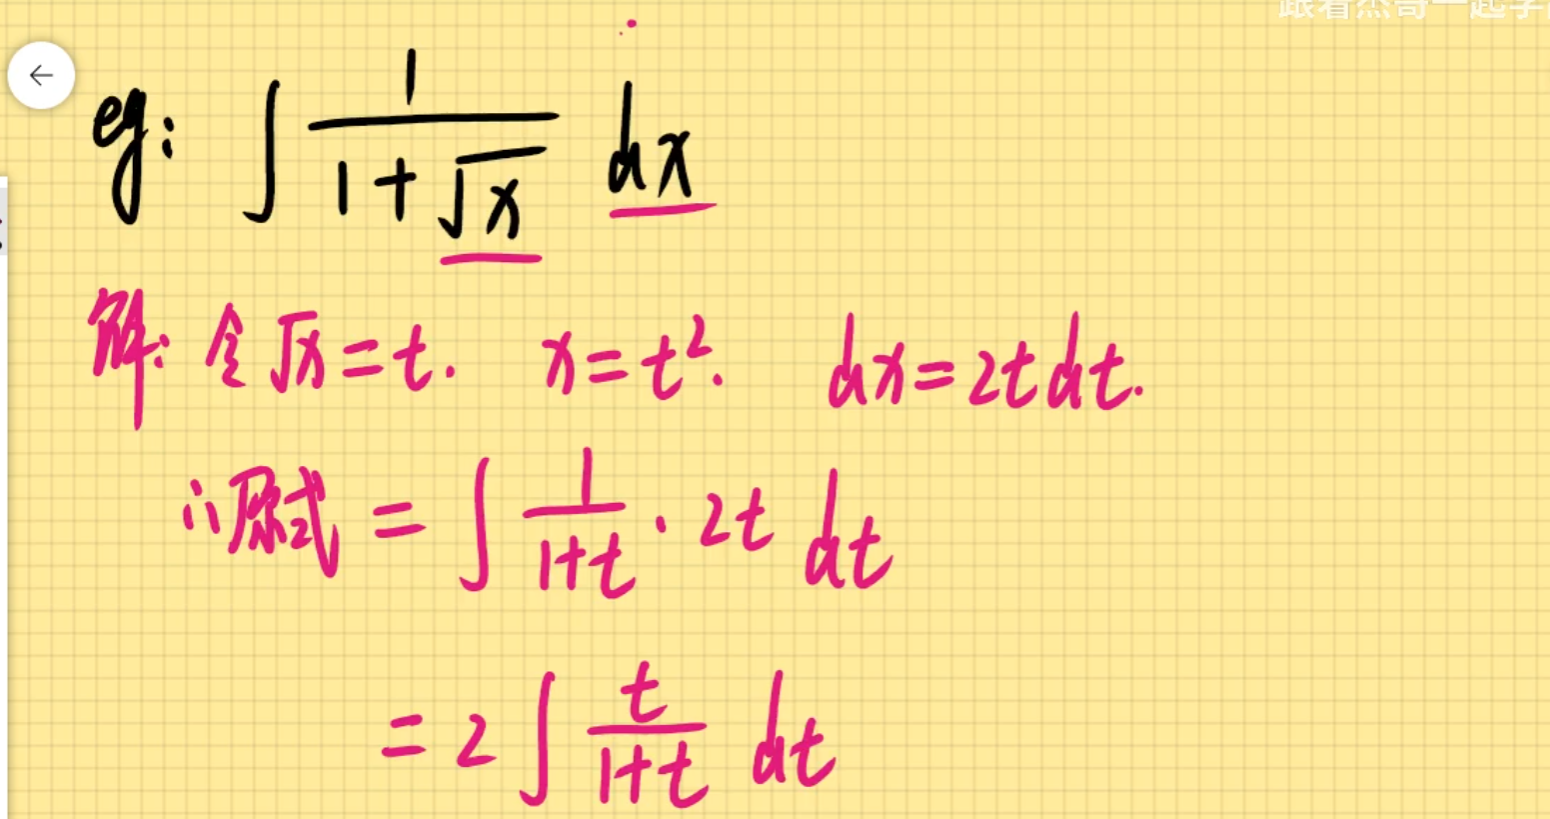 跟着杰哥一起学
eg: ∫ 1/(1+√x) dx
解: 令 √x = t. x = t². dx = 2t dt.
∴原式 = ∫ 1/(1+t) · 2t dt
= 2 ∫ t/(1+t) dt